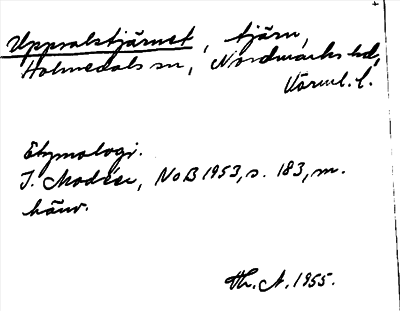 Uppsalstjärnet, tjärn,
Holmedals sn, Nordmarks hd,
Värml. l.
Etymologi.
I. Modéer, NoB 1953, s. 183, m.
hänv.
Th. A. 1955.